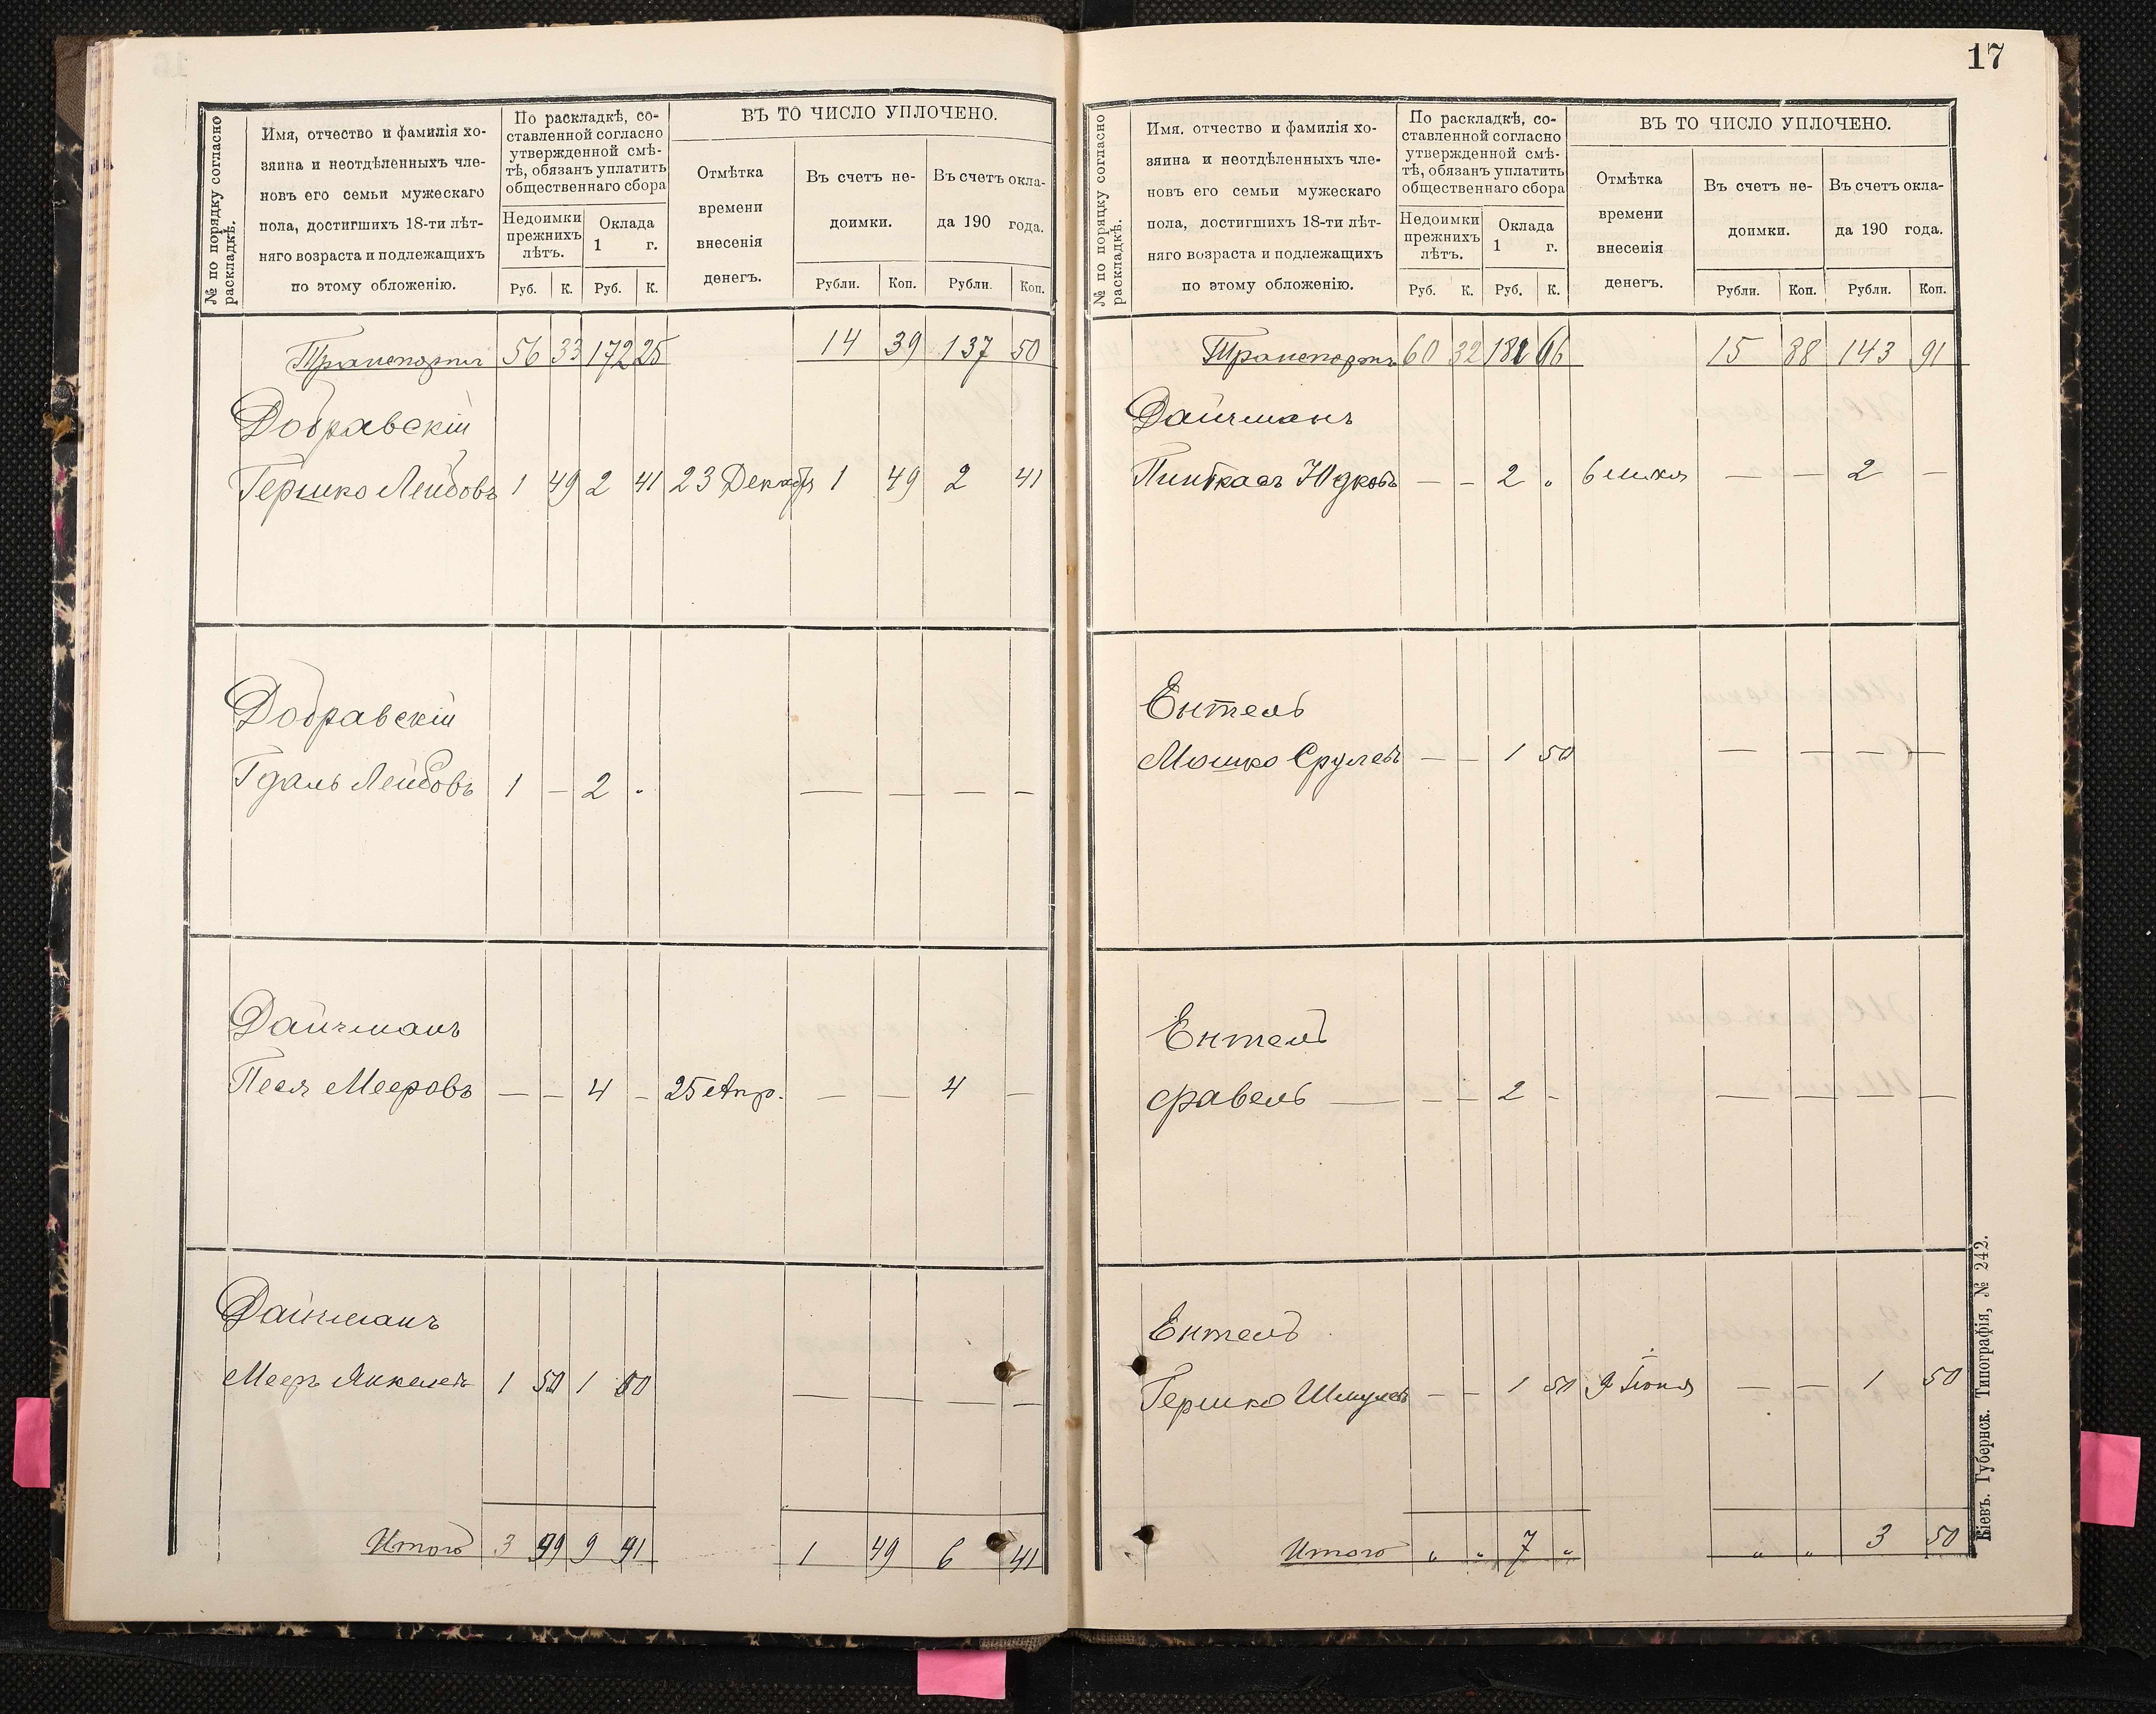 № по порядку согласно раскладкѣ.
Имя, отчество и фамилія хо-
зяина и неотдѣленныхъ чле-
новъ его семьи мужескаго
пола, достигшихъ 18-ти лѣт-
няго возраста и подлежащихъ
по этому обложенію.
По раскладкѣ, со-
ставленной согласно
утвержденной смѣ-
тѣ, обязанъ уплатить
общественнаго сбора
Недоимки
прежнихъ
лѣтъ.
Оклада
1 г.
Руб. К. Руб. К.
ВЪ ТО ЧИСЛО УПЛОЧЕНО.
Отмѣтка
времени
внесенія
денегъ.
Въ счетъ не-
доимки.
Въ счетъ окла-
да 190 года.
Рубли. Коп. Рубли. Коп.
Транспортъ 56 33 172 25 14 39 137 50
Добравскій
Гершко Лейбовъ 1 49 2 41 23 Декабр 1 49 2 41
Добравскій
Гдаль Лейбовъ 1 — 2 „ — — — —
Дайчманъ
Песя Мееровъ — — 4 — 25 Апр. — — 4 —
Дайчманъ
Мееръ Янкелевъ 1 50 1 50 — — — —
Итого 3 99 9 91 1 49 6 41
17
№ по порядку согласно раскладкѣ.
Имя. отчество и фамилія хо-
зяина и неотдѣленныхъ чле-
новъ его семьи мужескаго
пола, достигшихъ 18-ти лѣт-
няго возраста и подлежащихъ
по этому обложенію.
По раскладкѣ, со-
ставленной согласно
утвержденной смѣ-
тѣ, обязанъ уплатить
общественнаго сбора
Недоимки
прежнихъ
лѣтъ.
Оклада
1 г.
Руб. К. Руб. К.
ВЪ ТО ЧИСЛО УПЛОЧЕНО.
Отмѣтка
времени
внесенія
денегъ.
Въ счетъ не-
доимки.
Въ счетъ окла-
да 190 года.
Рубли. Коп. Рубли. Коп.
Транспортъ 60 32 15 88 143 91
Дайчманъ
Пинкасъ Юдковъ — — 2 „ — — 2 —
Ентель
Мошко Срулевъ — — 1 50 — — — —
Ентель
Фравель — — — 2 — — — — —
Ентель
Гершко Шмулевъ — — 1 50 9 Іюня — — 1 50
Итого „ „ 7 „ „ „ 3 50
Кіевъ. Губернск. Типографія, № 242.